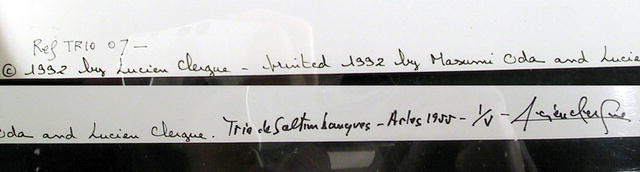 Ref TRIO 07 -
© 1992 by Lucien Clergue - Printed 1992 by Masumi Oda and Lucie
Oda and Lucien Clergue. Trio de Saltimbanques - Arles 1955 - 1/V - Lucien Clergue